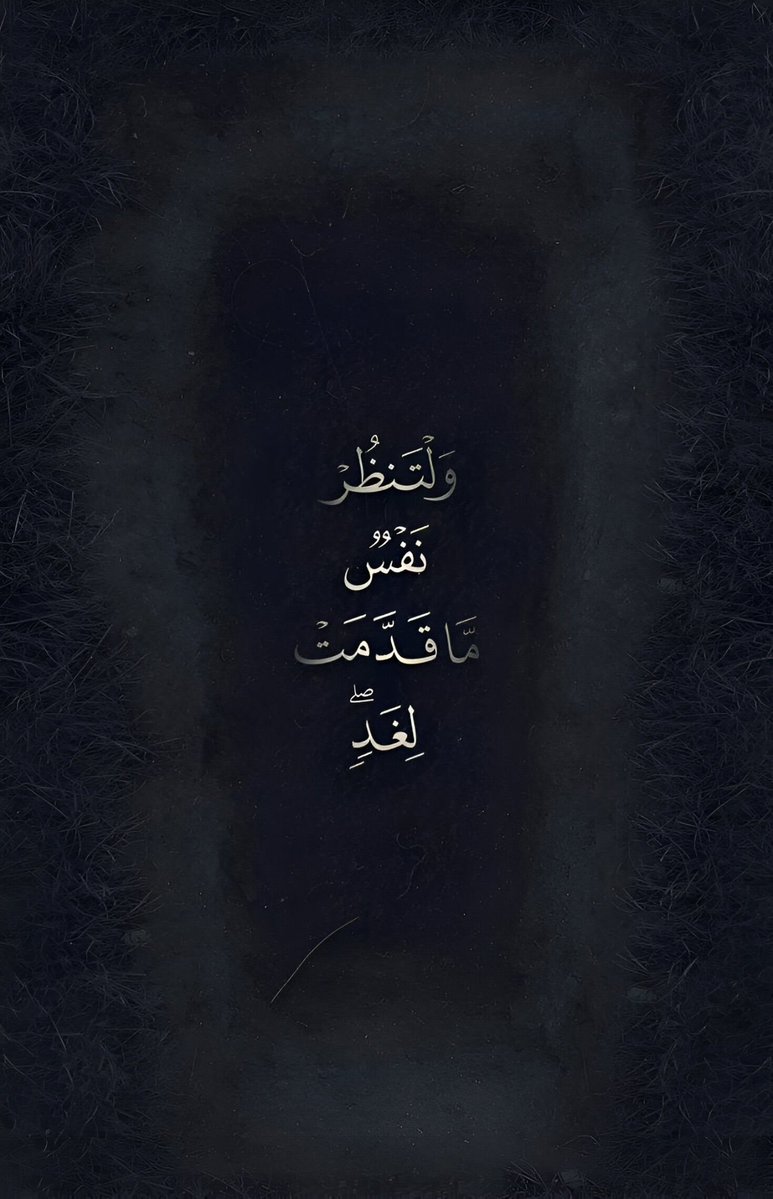 وَلْتَنظُرْ
نَفْسٌ
مَّا قَدَّمَتْ
لِغَدٍ ۖ